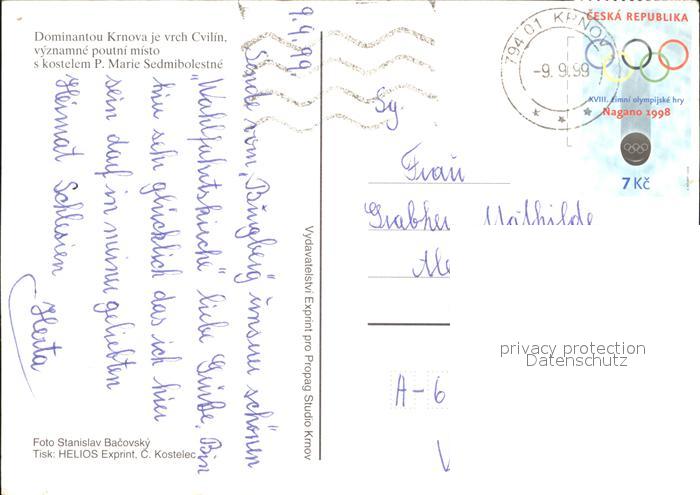 Dominantou Krnova je vrch Cvilín,
významné poutní místo
s kostelem P. Marie Sedmibolestné
9.9.99.
Sende vom „Burgberg" unsere schönen
„Wahlfahrtskirche" liebe Grüße. Bin
hir sehr glücklich das ich hier
sein darf in meiner geliebten
Heimat Schlesien
Herta
Foto Stanislav Bačovský
Tisk: HELIOS Exprint, Č. Kostelec
Vydavatelství Exprint pro Propag Studio Krnov
794 01 KRNOV
-9.9.99
ČESKÁ REPUBLIKA
XVIII. zimní olympijské hry
Nagano 1998
7 Kč
Frau
Mathilde
A-6
privacy protection
Datenschutz